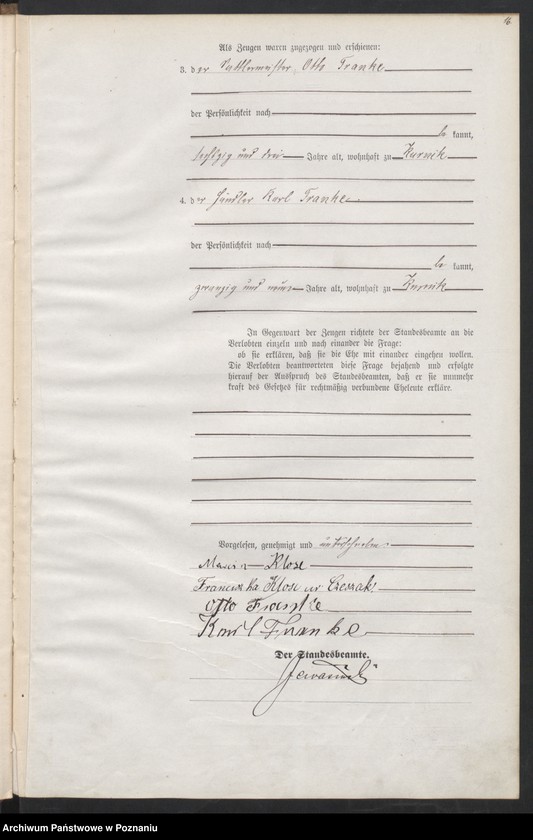 16
Als Zeugen waren zugezogen und erschienen:
3. der Sattlermeister Otto Franke
der Persönlichkeit nach
be kannt,
sechszig und drei Jahre alt, wohnhaft zu Kurnik
4. der Händler Karl Franke
der Persönlichkeit nach
be kannt,
zwanzig und neun Jahre alt, wohnhaft zu Kurnik
In Gegenwart der Zeugen richtete der Standesbeamte an die
Verlobten einzeln und nach einander die Frage:
ob sie erklären, daß sie die Ehe mit einander eingehen wollen.
Die Verlobten beantworteten diese Frage bejahend und erfolgte
hierauf der Ausspruch des Standesbeamten, daß er sie nunmehr
kraft des Gesetzes für rechtmäßig verbundene Eheleute erkläre.
Vorgelesen, genehmigt und unterschrieben
Klose
Klose
Otto Franke
Karl Franke
Der Standesbeamte.
Archiwum Państwowe w Poznaniu